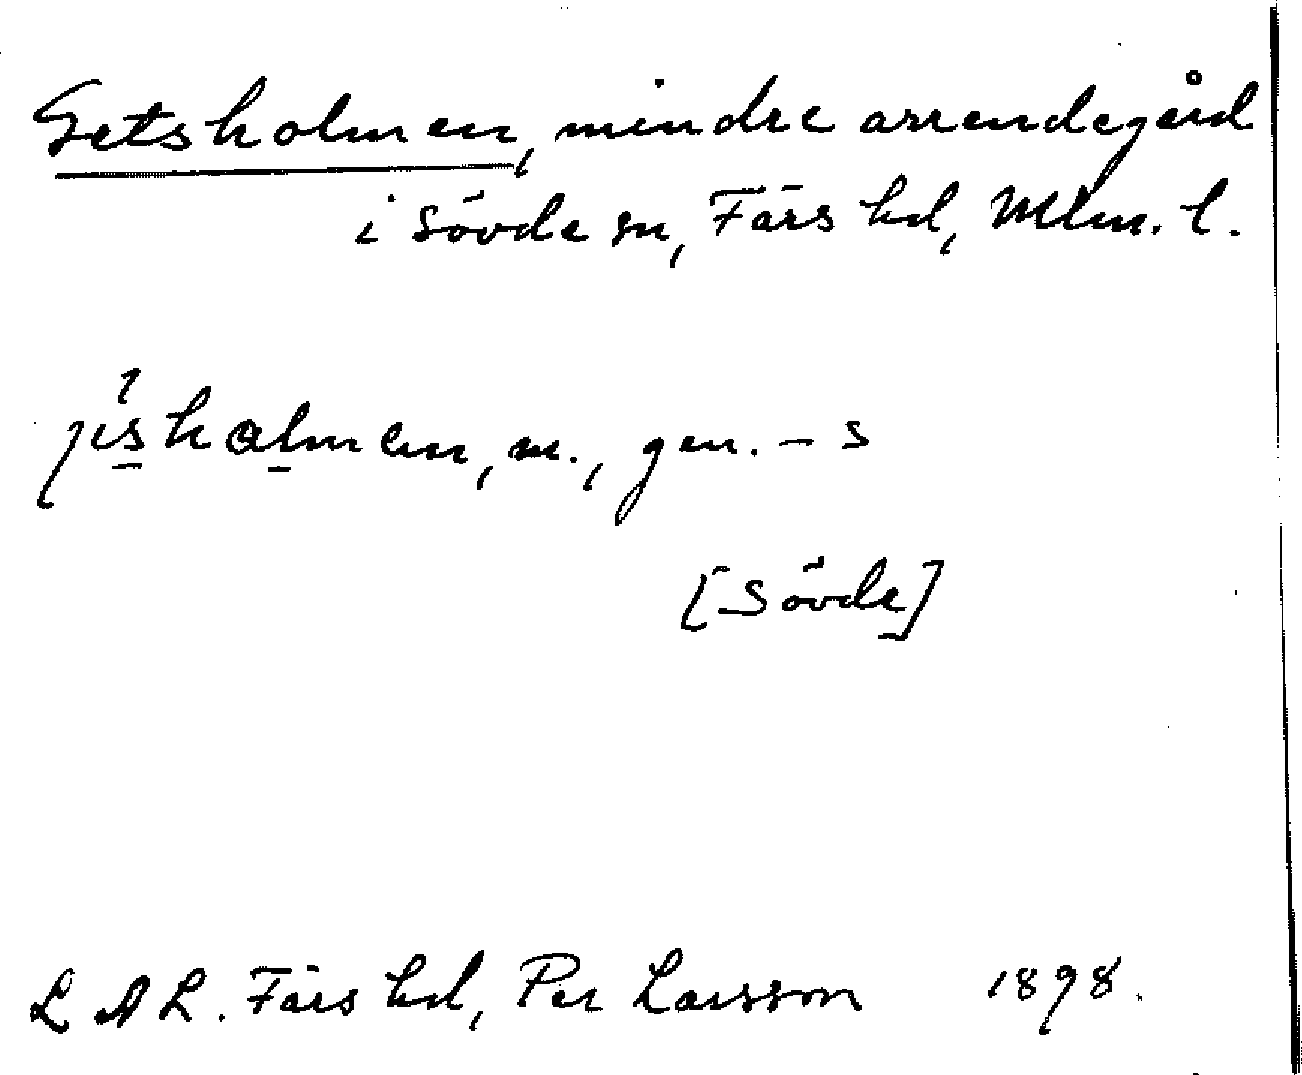 Getsholmen, mindre arrendegård
i Sövde sn, Färs hd, Mlm. l.
jisholmen, m., gen. – s
[Sövde]
LAL. Färs hd, Per Larsson 1898.